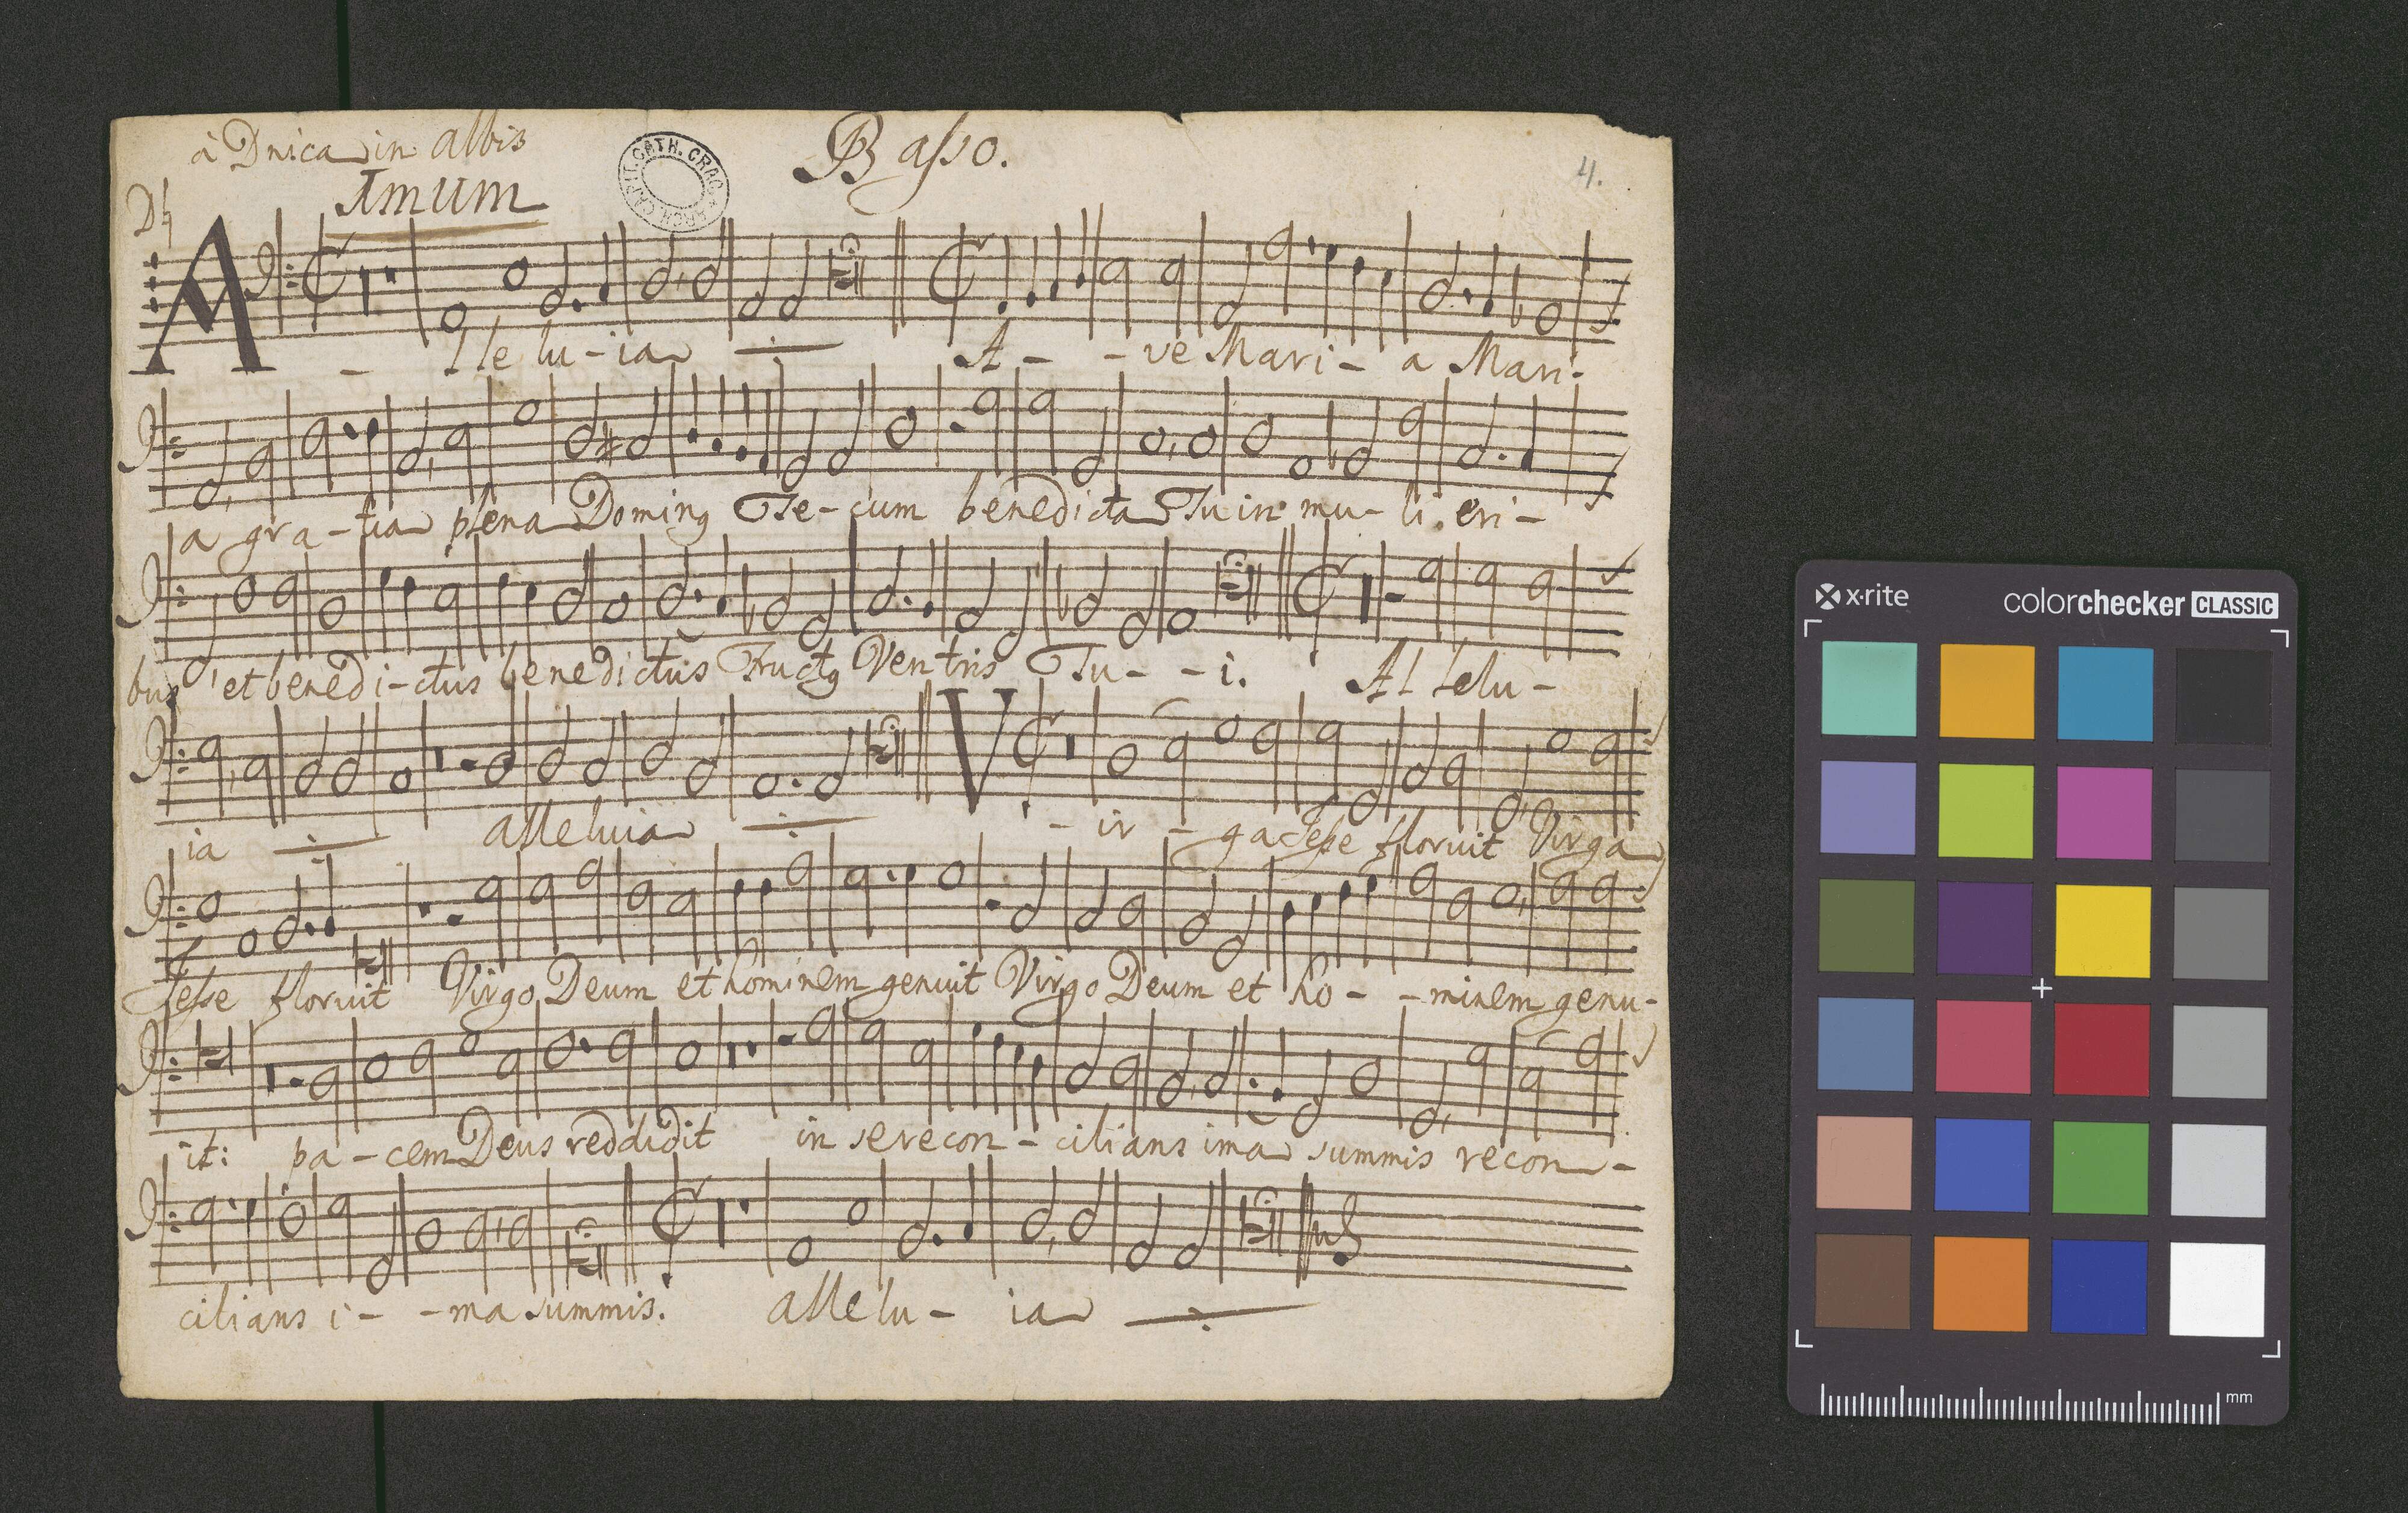 à Dnica in albis
Basso.
4.
Imum
ARCH. CAPIT. CATH. CRAC.
A - lleluia A - - ve Mari - a Mari-
a gra - tia plena Doming Te - cum benedicta Tu in mu - li eri -
bus et benedi - ctus benedictus Fructg Ventris Tu - - i. Al lelu -
ia alleluia V - ir - ga Jesse floruit Virga
Jesse floruit Virgo Deum et hominem genuit Virgo Deum et ho - - minem genu-
it: pa - cem Deus reddidit in se recon - cilians ima summis recon -
cilians i - - ma summis. allelu - ia
x·rite
colorchecker CLASSIC
mm